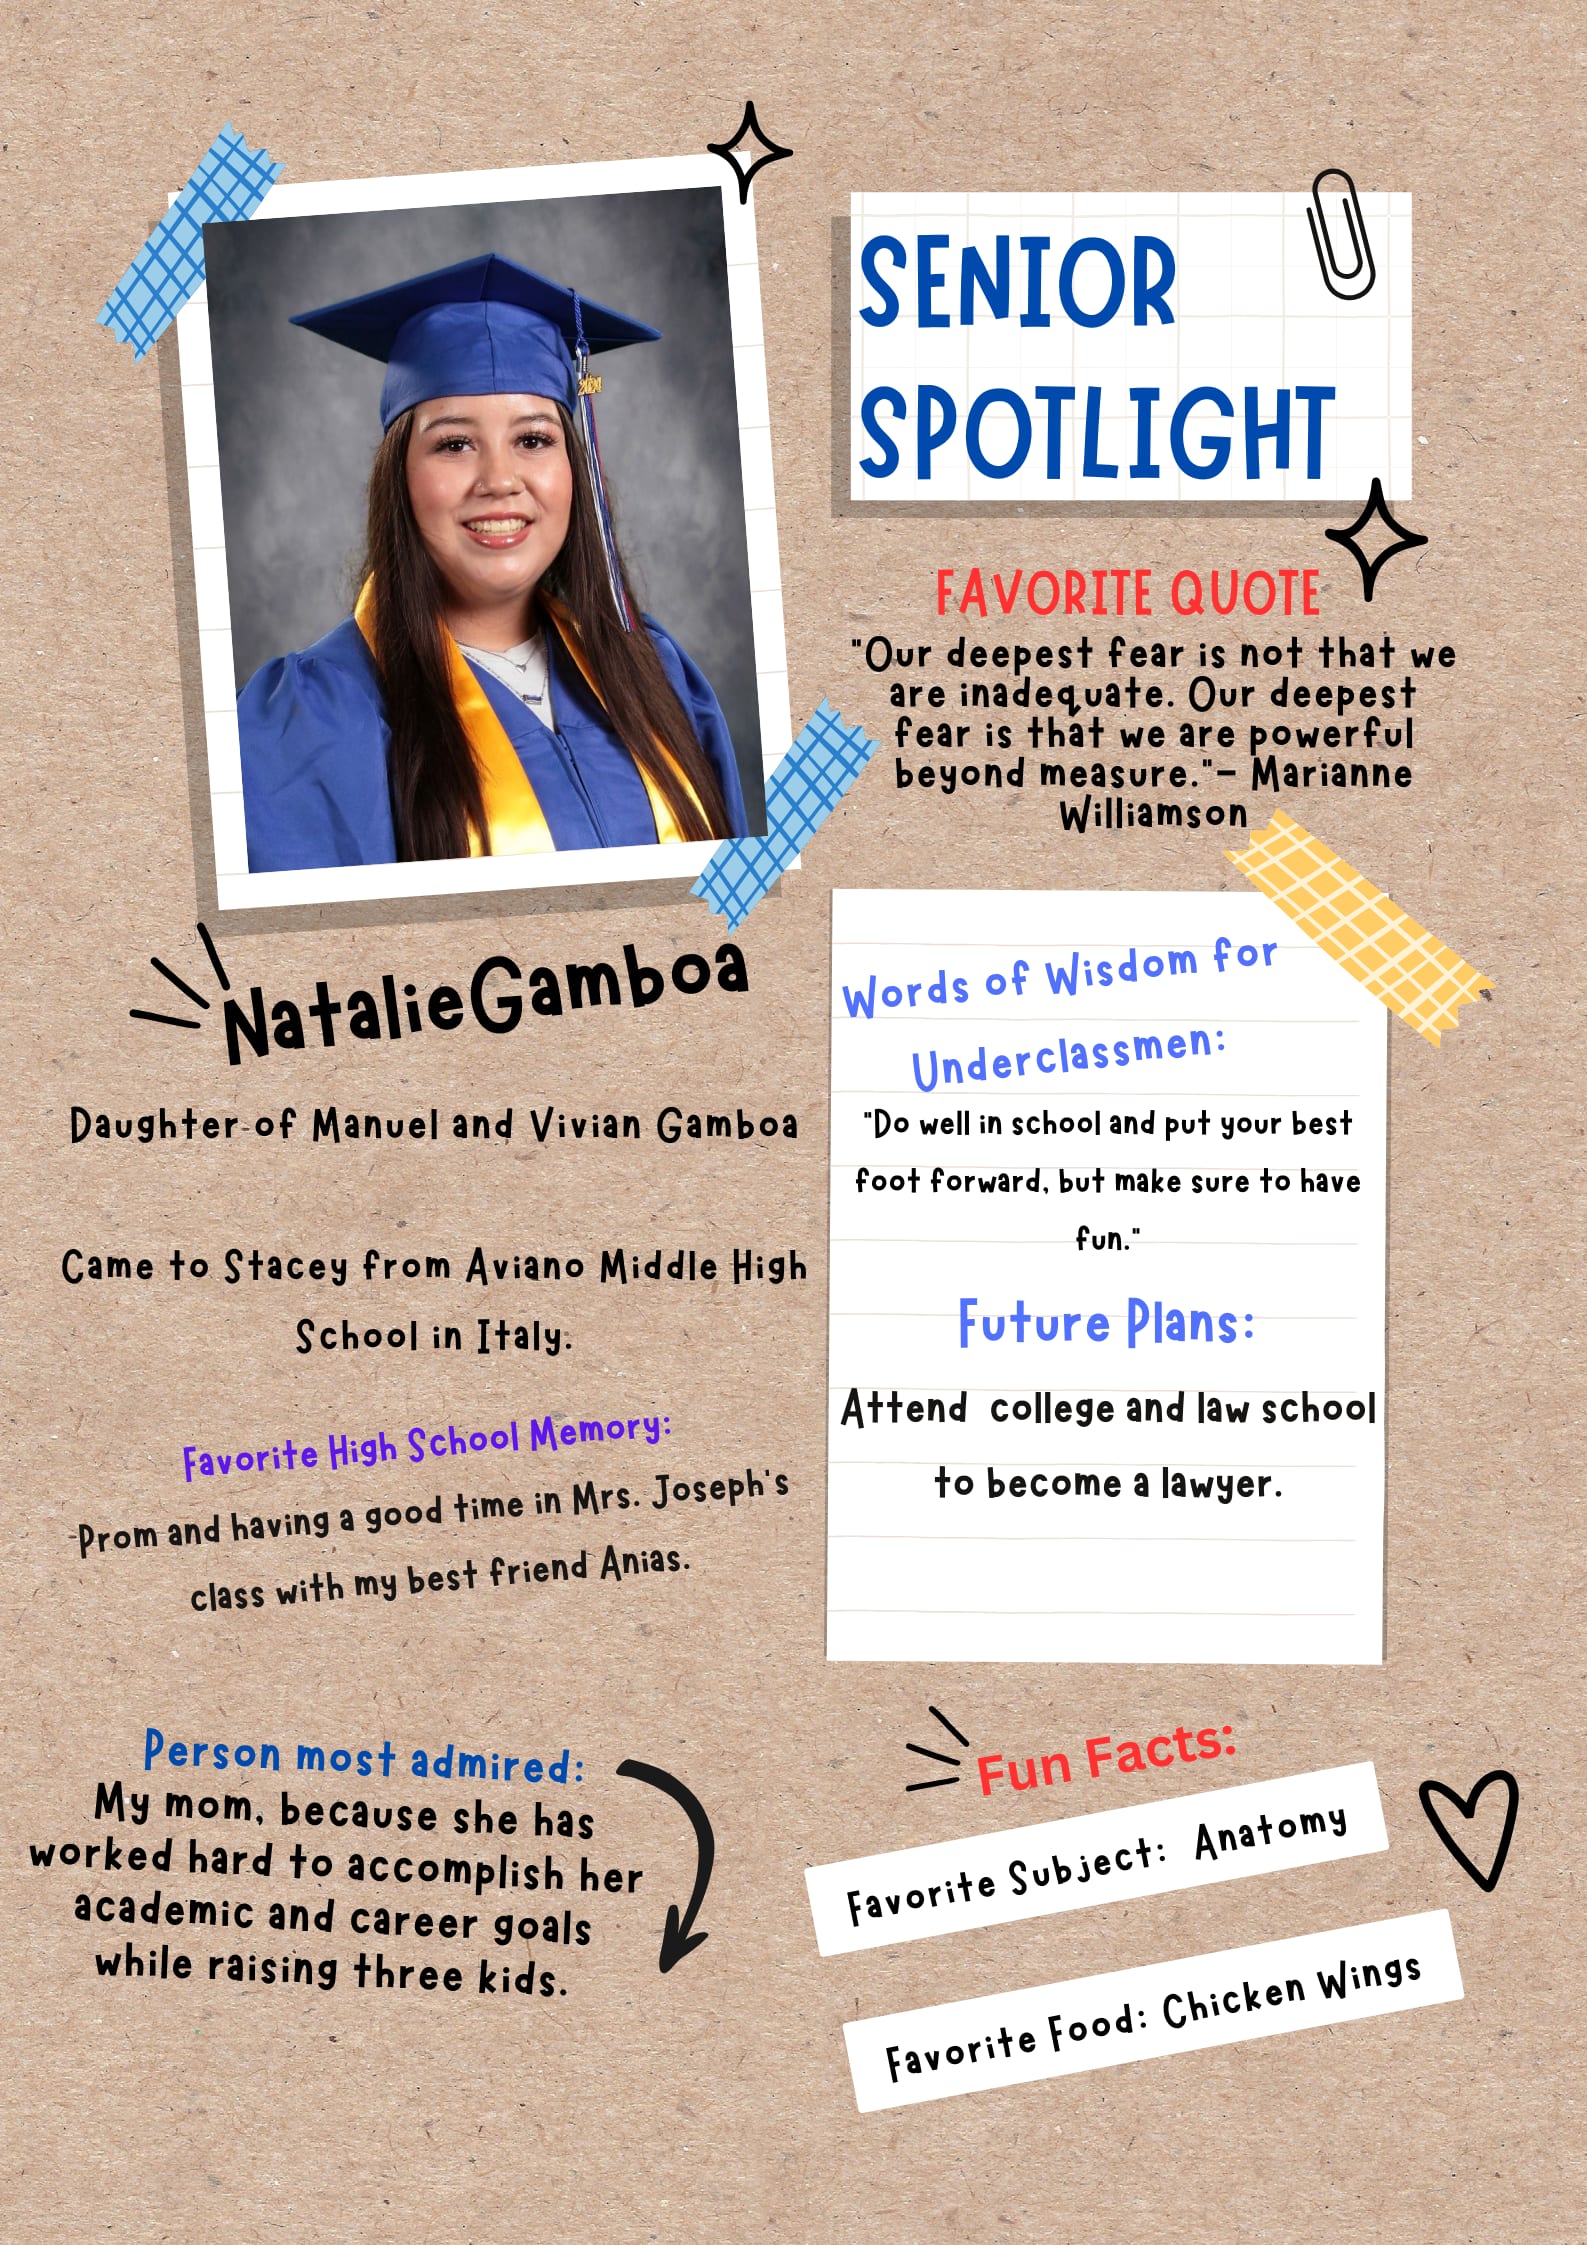 2024
SENIOR
SPOTLIGHT
FAVORITE QUOTE
"Our deepest fear is not that we
are inadequate. Our deepest
fear is that we are powerful
beyond measure."- Marianne
Williamson
NatalieGamboa
Daughter of Manuel and Vivian Gamboa
Came to Stacey from Aviano Middle High
School in Italy.
Favorite High School Memory:
Prom and having a good time in Mrs. Joseph's
class with my best friend Anias.
Person most admired:
My mom, because she has
worked hard to accomplish her
academic and career goals
while raising three kids.
Words of Wisdom for
Underclassmen:
"Do well in school and put your best
foot forward, but make sure to have
fun."
Future Plans:
Attend college and law school
to become a lawyer.
Fun Facts:
Favorite Subject: Anatomy
Favorite Food: Chicken Wings